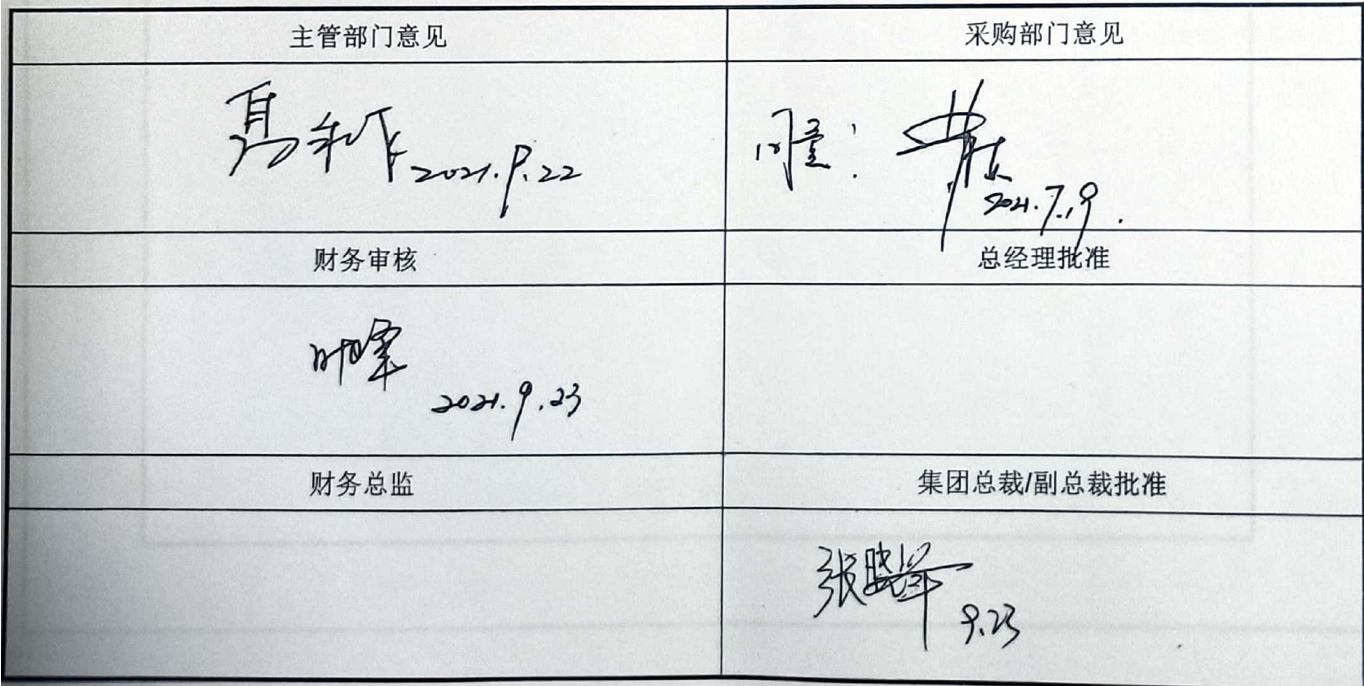 主管部门意见
采购部门意见
2021.9.22
同意!
2021.7.19.
财务审核
总经理批准
2021.9.23
财务总监
集团总裁/副总裁批准
张晓峰
9.23